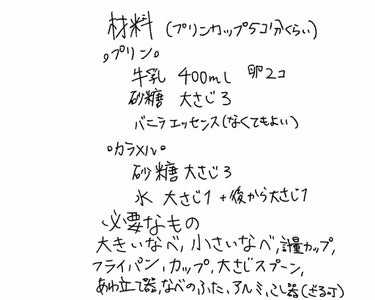 材料 (プリンカップ5コ分くらい)
○プリン○
牛乳 400ml 卵2コ
砂糖 大さじ3
バニラエッセンス(なくてもよい)
○カラメル○
砂糖 大さじ3
水 大さじ1 +後から大さじ1
必要なもの
大きいなべ, 小さいなべ, 計量カップ,
フライパン, カップ, 大さじスプーン,
あわ立て器, なべのふた, アルミ, こし器(ざる可)